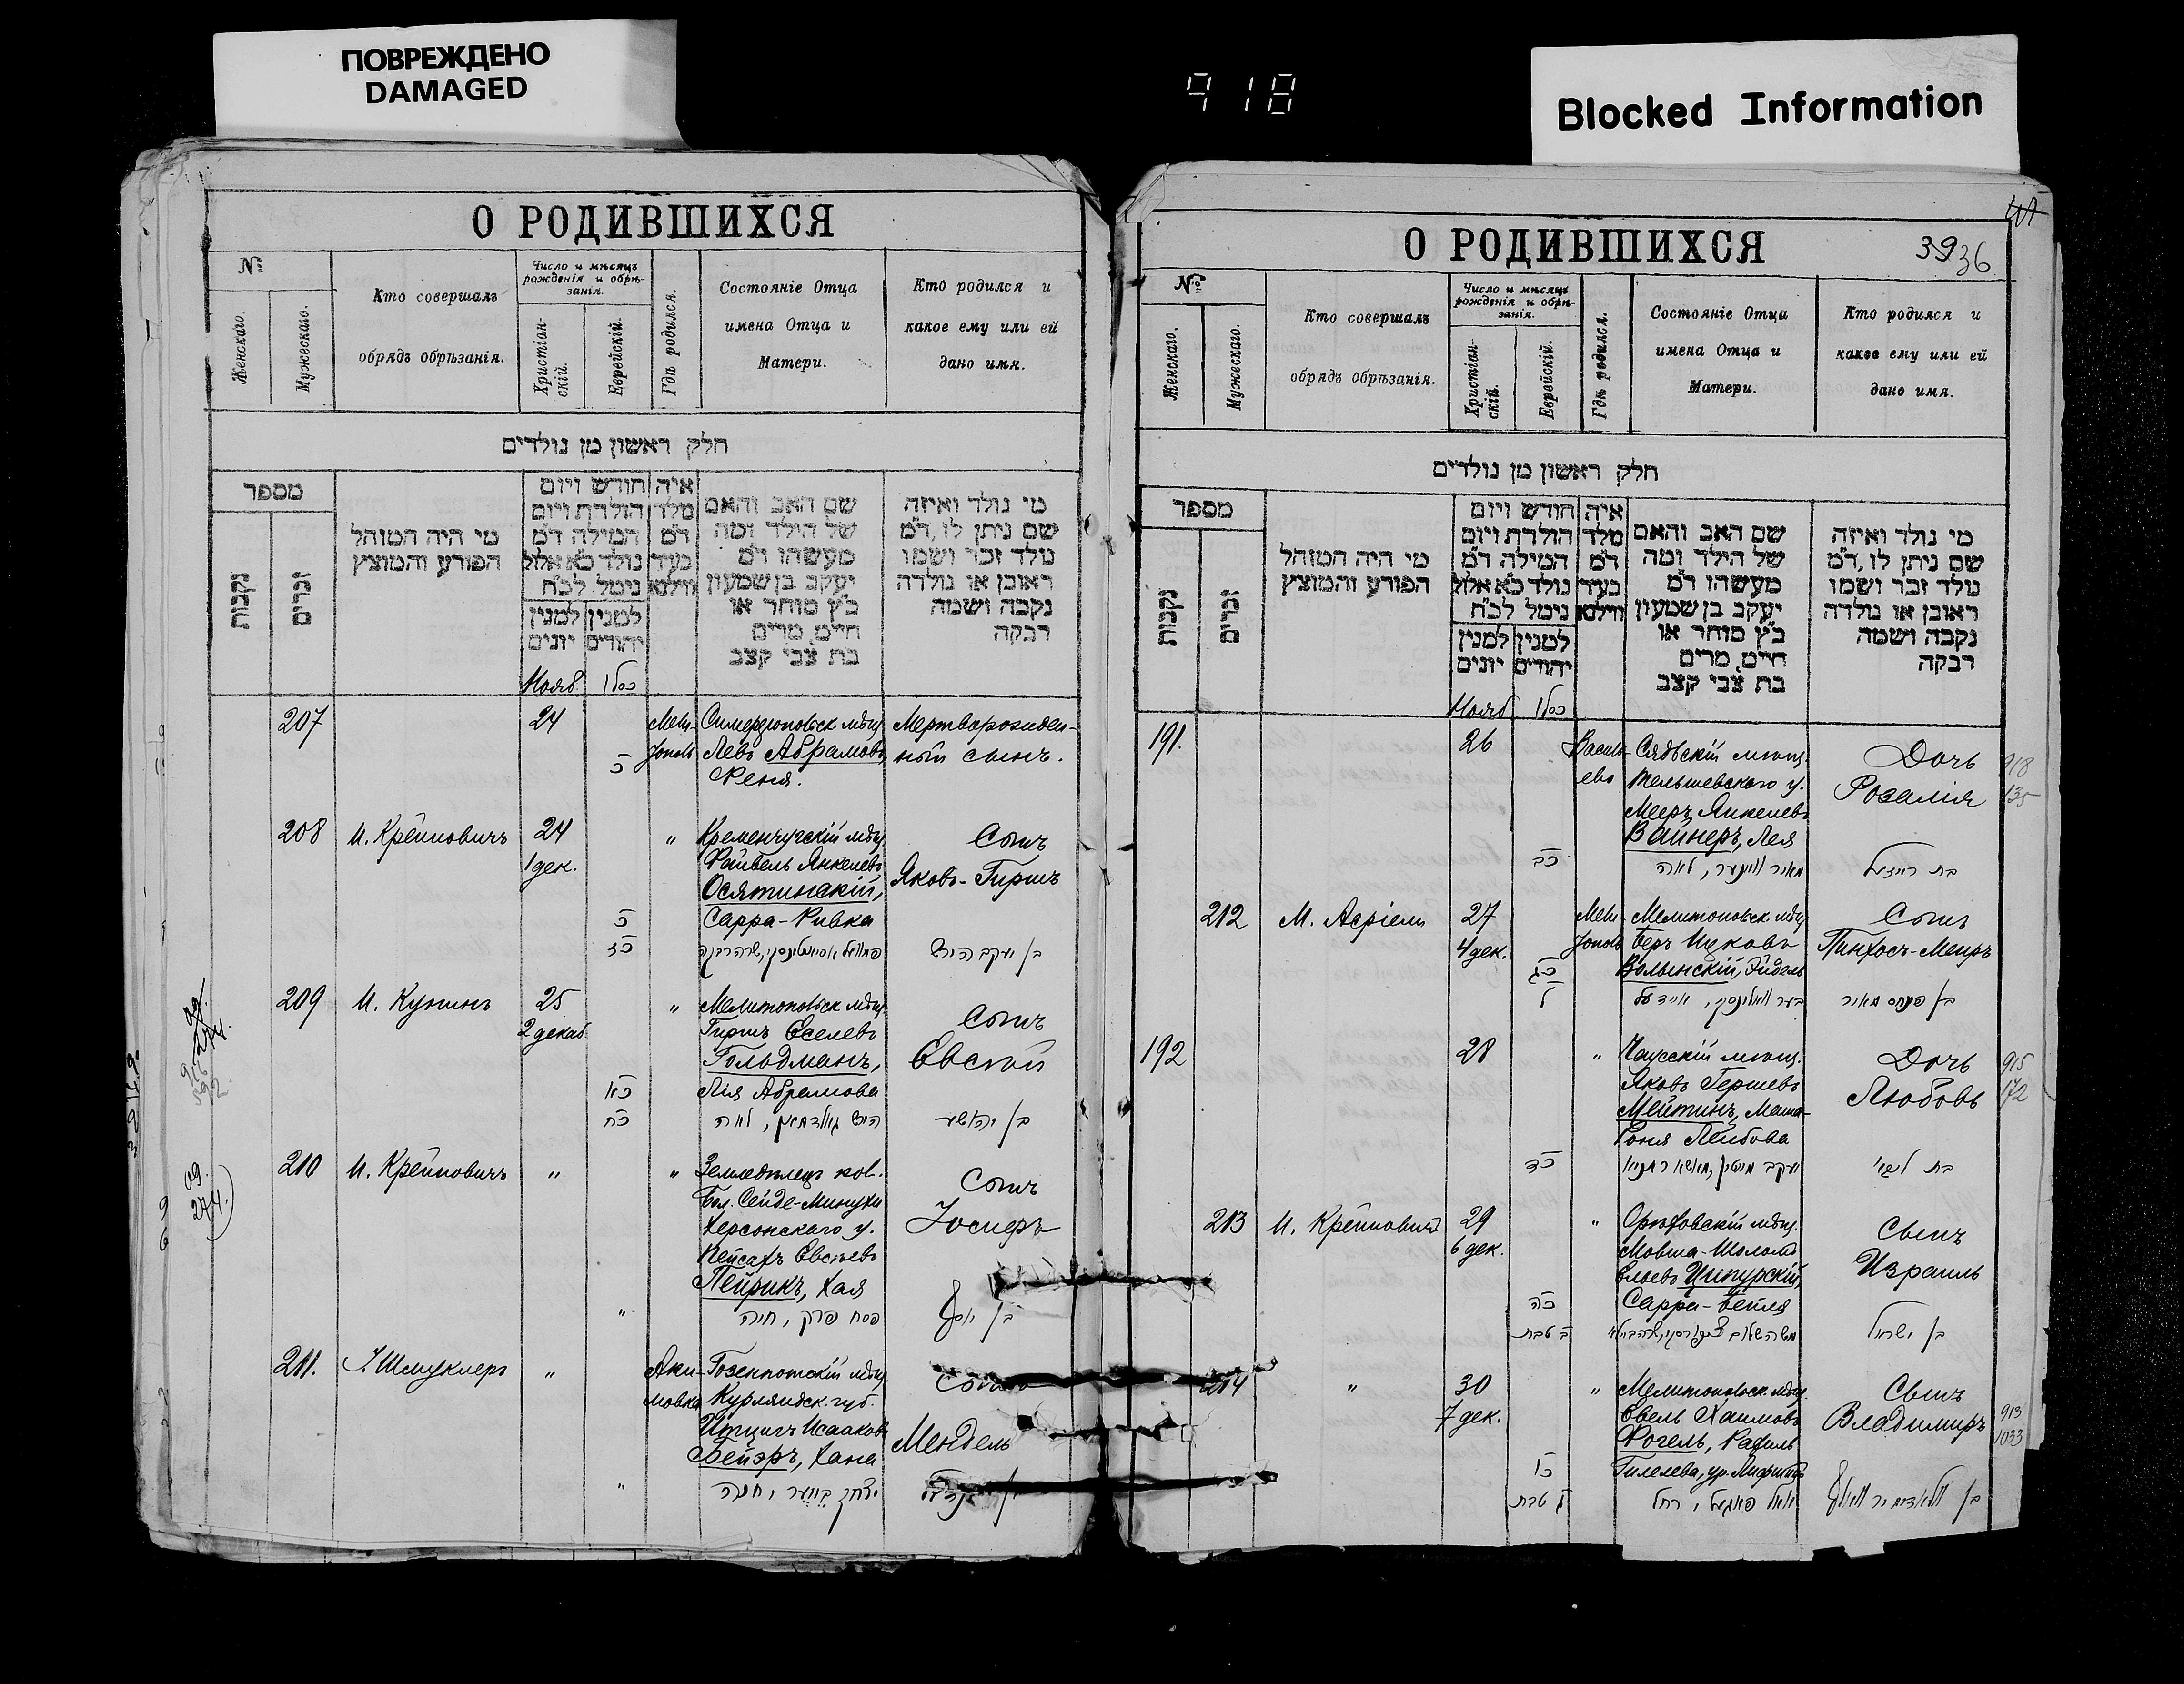 ПОВРЕЖДЕНО
DAMAGED
918
Blocked Information
О РОДИВШИХСЯ
№
Женскаго.
Мужескаго.
Кто совершалъ
обрядъ обрѣзанія.
Число и мѣсяцъ
рожденія и обрѣ-
занія.
Христіан-
скій.
Еврейскій.
Гдѣ родился.
Состояніе Отца
имена Отца и
Матери.
Кто родился и
какое ему или ей
дано имя.
חלק ראשון מן נולדים
מספר
נקבות
זכרים
מי היה המוהל
הפורע והמוצץ
חודש ויום
הולדת ויום
המילה ד״מ
נולד כ״א אלול
נימל לכ״ח
למנין
יהודים
למנין
יונים
איה
מלד
ד״מ
בעיר
ווילנא
שם האב והאם
של הילד ומה
מעשהו ד״מ
יעקב בן שמעון
כ״ץ סוחר או
חייט, מרים
בת צבי קצב
מי נולד ואיזה
שם ניתן לו, ד״מ
נולד זכר ושמו
ראובן או נולדה
נקבה ושמה
רבקה
Нояб כסלו
207 24 Мели-
тополь
Симферопольск мѣщ.
Левъ Абрамовъ,
Феня.
Мертворожден-
ный сынъ.
כ
208 И. Крейновичъ 24
1 дек.
"
Кременчугскій мѣщ.
Файвель Янкелевъ
Осятинскій,
Сарра-Ривка
Сынъ
Яковъ-Гиршъ
כ
כז
בן יעקב הירש
209 И. Кунинъ 25
2 декаб.
"
Мелитопольск мѣщ.
Гиршъ Евселевъ
Гольдманъ,
Лія Абрамова
Сынъ
Евсей
כא
כח
הירש גאלדמאן, לאה
בן יהושע
210 И. Крейновичъ " "
Земледѣлецъ кол.
Бол. Сейде-Минухи
Херсонскаго у.
Пейсахъ Евсѣевъ
Пейрикъ, Хая
Сынъ
Іосифъ
"
פסח פריק, חיה
בן יוסף
211. І Шмуклеръ "
Аки-
мовка
Газенпотскій мѣщ.
Курляндск. губ.
Ицигъ Исааковъ
Бейэръ, Хана
Сынъ
Мендель
"
יצחק בייער, חנה
О РОДИВШИХСЯ
3936
№
Женскаго.
Мужескаго.
Кто совершалъ
обрядъ обрѣзанія.
Число и мѣсяцъ
рожденія и обрѣ-
занія.
Христіан-
скій.
Еврейскій.
Гдѣ родился.
Состояніе Отца
имена Отца и
Матери.
Кто родился и
какое ему или ей
дано имя.
חלק ראשון מן נולדים
מספר
נקבות
זכרים
מי היה המוהל
הפורע והמוצץ
חודש ויום
הולדת ויום
המילה ד״מ
נולד כ״א אלול
נימל לכ״ח
למנין
יהודים
למנין
יונים
איה
מלד
ד״מ
בעיר
ווילנא
שם האב והאם
של הילד ומה
מעשהו ד״מ
יעקב בן שמעון
כ״ץ סוחר או
חייט, מרים
בת צבי קצב
מי נולד ואיזה
שם ניתן לו, ד״מ
נולד זכר ושמו
ראובן או נולדה
נקבה ושמה
רבקה
Нояб כסלו
191. 26
Василь-
ево
Сядскій мѣщ.
Тельшевскаго у.
Мееръ Янкелевъ
Вайнеръ, Лея
Дочь
Розалія
918
135
כב
מאיר ווינער, לאה
בת רייזעל
212 М. Асріели 27
4 дек.
Мели-
тополь
Мелитопольск мѣщ
Беръ Ицковъ
Волынскій, Эйдель
Сынъ
Пинхосъ-Меиръ
כג
ל
בער וואלינסקי, איידעל
בן פנחס מאיר
192 28 "
Чаусскій мѣщ.
Яковъ Гершевъ
Мейтинъ, Маша-
Роня Лейбова
Дочь
Любовь
915
172
כד
213 И. Крейновичъ 29
6 дек.
"
Орѣховскій мѣщ.
Мовша-Шоломъ
Ципурскій,
Сарра-Бейля
Сынъ
Израиль
כה
ב טבת
בן ישראל
214 " 30
7 дек.
"
Мелитопольск. мѣщ.
Евель Хаимовъ
Фогель, Рахиль
Гилелева,
Сынъ
Владимиръ
913
1033
כו
ג טבת
יואל פאגעל, רחל